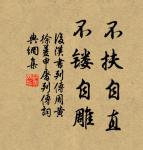 不扶自直
不镂自雕
後漢書列傳周黃
徐姜申屠列傳詞
典網集